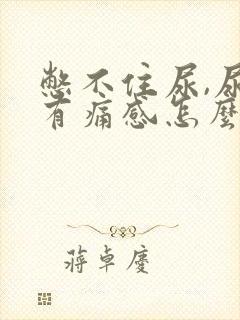 憋不住尿,尿
有痛感怎麼
蔣卓慶